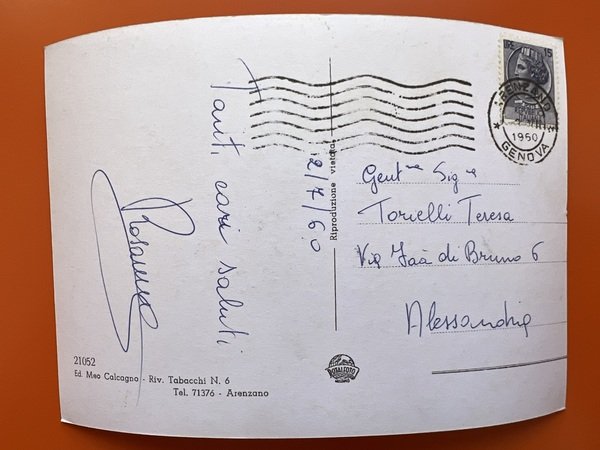 Tanti cari saluti
2/7/60
Rosanna
21052
Ed. Meo Calcagno - Riv. Tabacchi N. 6
Tel. 71376 - Arenzano
Riproduzione vietata
LIRE 15
ARENZANO
1960
GENOVA
Gent.ma Sig.ra
Torielli Teresa
Via Isà di Bruno 6
Alessandria
ROTALFOTO
MILANO